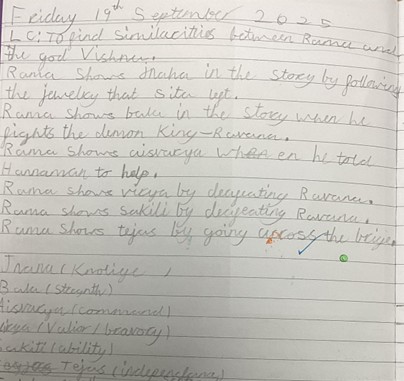 Friday 19th September 2025
LC: To find similarities between Rama and
the god Vishnu.
Rama shows in the story by following
the jewelry that sita left.
Rama shows bala in the story when he
fights the demon king-Ravana.
Rama shows aisvarya when he told
Hannaman to help.
Rama shows virya by Ravana.
Rama shows sakiti by Ravana.
Rama shows tejas by going across the
Jnana (
Bala (
Aisvarya (command)
(Valior/bravory)
sakiti (ability)
Tejas (